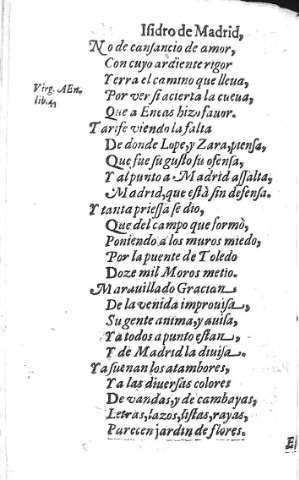 Isidro de Madrid,
No de cansancio de amor,
Con cuyo ardiente rigor
Yerra el camino que lleua,
Virg. AEn.
lib. 4,
Por ver si acierta la cueua,
Que a Eneas hizo fauor.
Tarife viendo la falta
De donde Lope, y Zara, piensa,
Que fue su gusto su ofensa,
Y al punto a Madrid assalta,
Madrid, que està sin defensa.
Y tanta priessa se dio,
Que del campo que formò,
Poniendo a los muros miedo,
Por la puente de Toledo
Doze mil Moros metio.
Marauillado Gracian
De la venida improuisa,
Su gente anima, y auisa,
Y a todos a punto estan,
Y de Madrid la diuisa.
Ya suenan los atambores,
Y a las diuersas colores
De vandas, y de cambayas,
Letras, lazos, listas, rayas,
Parecen jardin de flores.